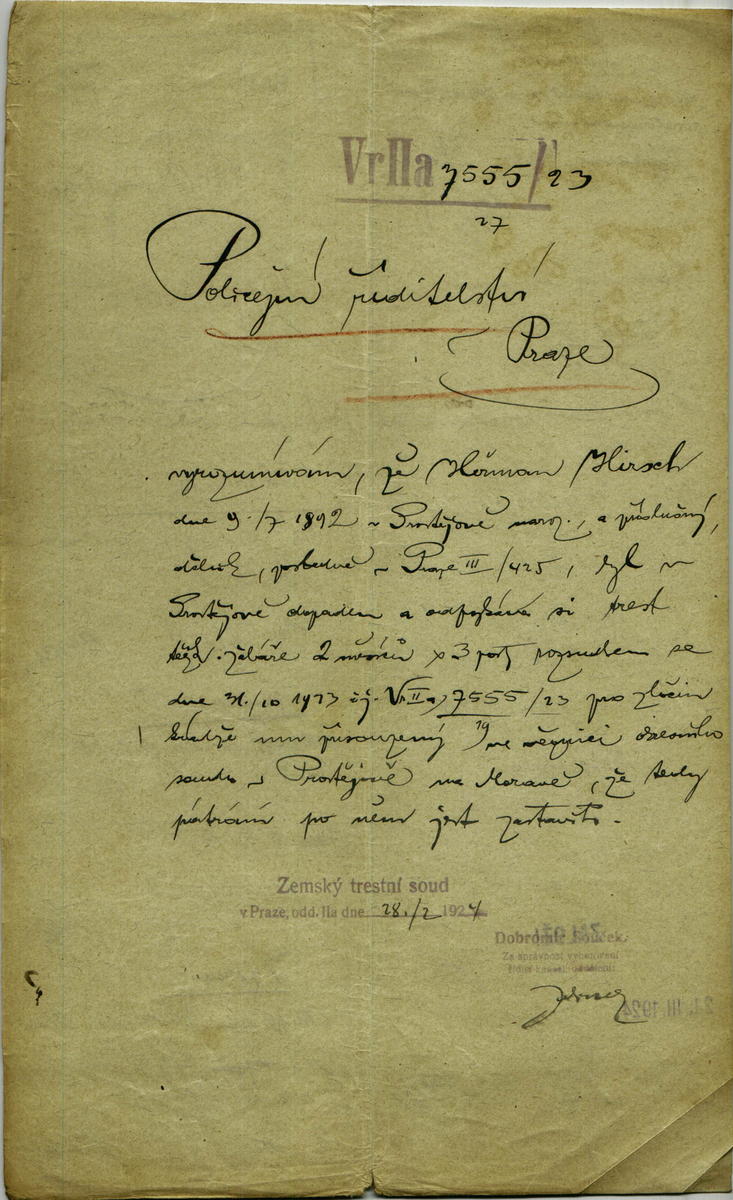 VrIIa 7555/23
27
Policejní ředitelství
v Praze
vyrozumívám, že Heřman Hirsch
dne 9./7 1892 v Prostějově naroz., a příslušný,
dělník, posledně v Praze III/425, byl v
Prostějově dopaden a odpykává si trest
těžk. žaláře 2 měsíců rozsudkem ze
dne 31./10 1923 čj. VrIIa 7555/23 pro zločin
krádeže mu přisouzený ve věznici okresního
soudu v Prostějově na Moravě, že tedy
pátrání po něm jest zastaviti.
Zemský trestní soud
v Praze, odd. IIa dne 28./2 1924
Dobromír Souček.
Za správnost vyhotovení
řídící kancel. oddělení:
21. III. 1924